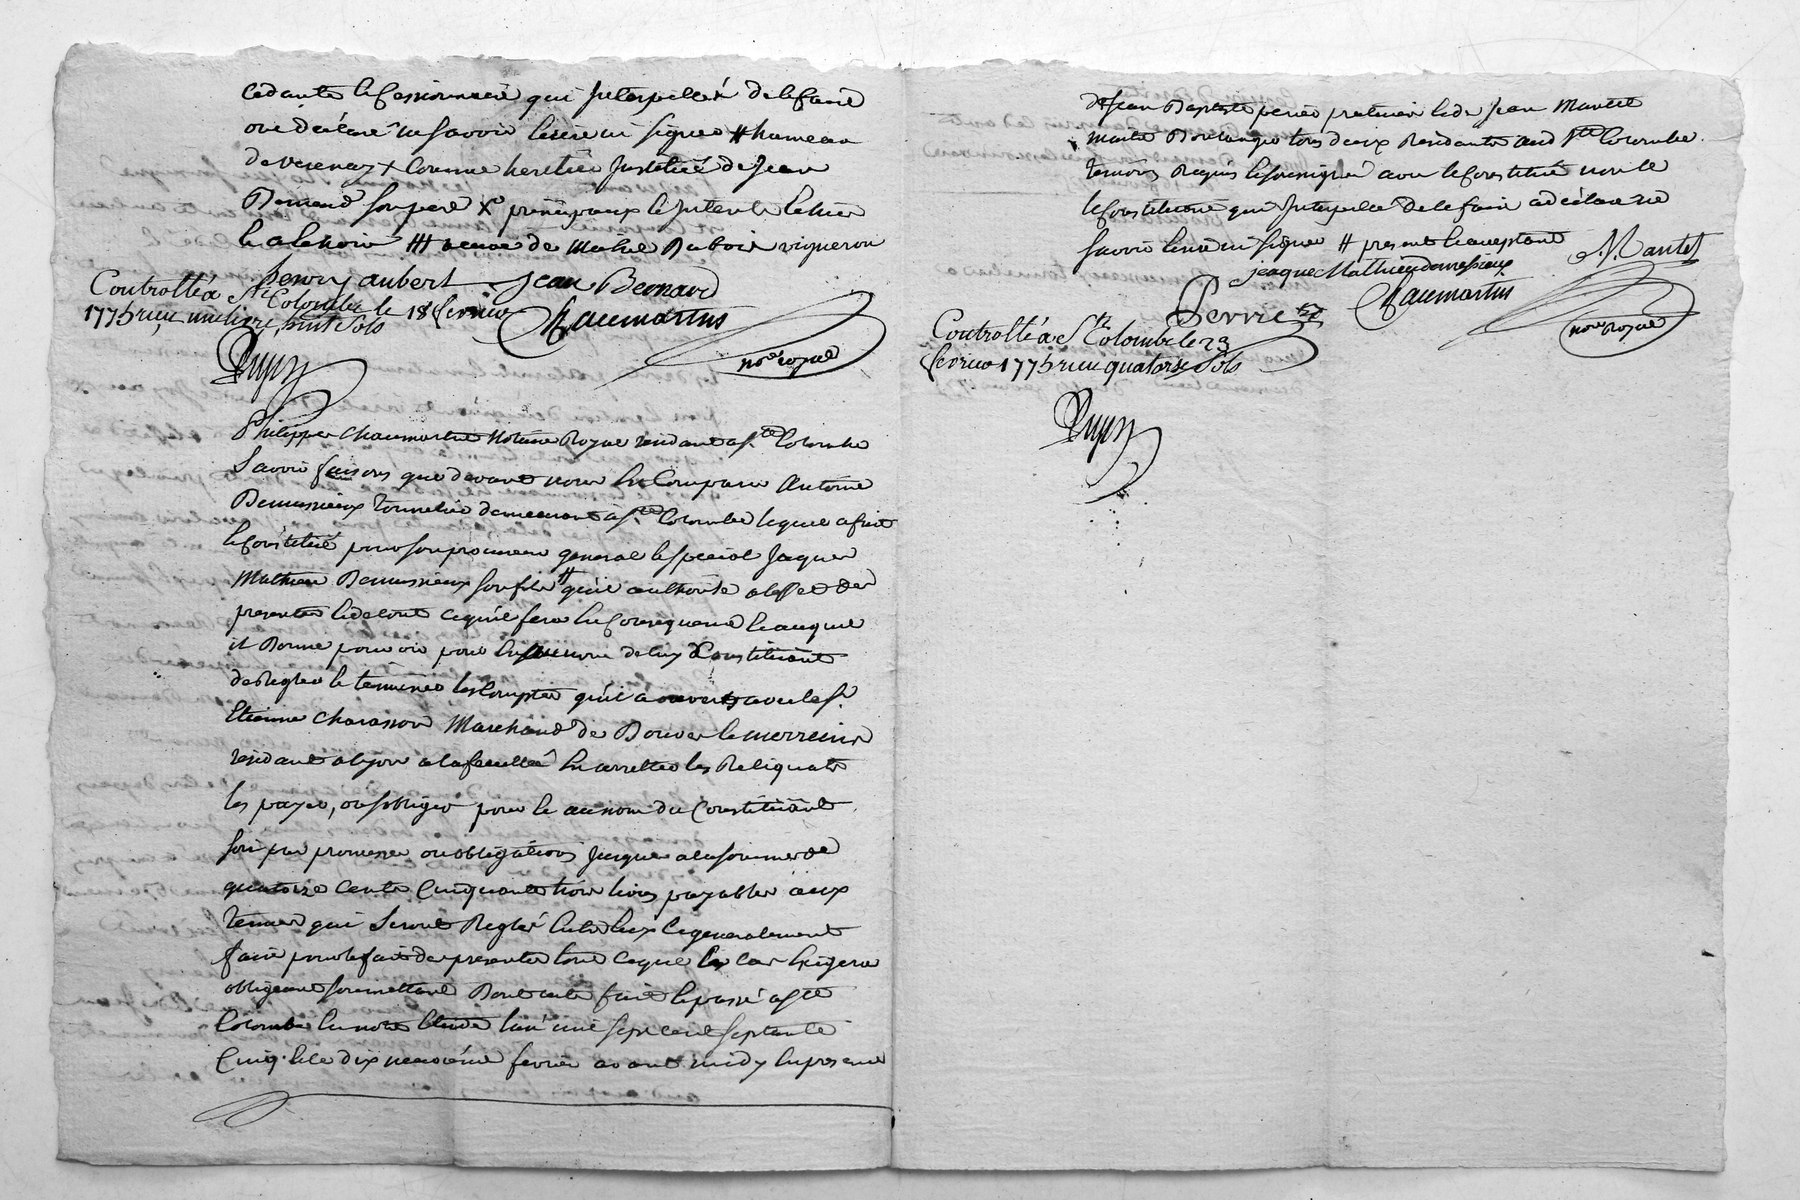 cedante le Cessionnaire qui Interpellé de le faire
ont déclaré ne savoir ne signer # hameau
de verenay + Comme heritier Institué de Jean
Bernard son pere X principaux
# veuve de Mathié Duboir vigneron
henry aubert Jean Bernard
Controllé a Ste Colombe le 18 fevrier
1775 reçu une livre huit sols
Chaumartin
nore royal
Puyin
Philippe Chaumartin Notaire Royal residant a Ste Colombe
Savoir faisons que devant nous En Comparu Antoine
Damessieux Tonnelier demeurant a Ste Colombe lequel a fait
le Constitué pour son procureur general & special Jaques
Mathieu Damessieux son fils # qu'il authorise a l'effet des
presentes & de tout ce qu'il fera En Consequence & auquel
il Donne pouvoir pour En au nom de luy Constituant
de Regler & terminer les Comptes qu'il a ouverts avec le Sr
Etienne Charasson Marchand de Douves & merreins
residant a lyon a la feuillée En arretter les Reliquats
les payer, ou s'obliger pour & au nom du Constituant
soit par promesses ou obligations jusques a la somme de
quatorze Cents Cinquante trois livres payables aux
termes qui seront Reglés Entr'Eux & generalement
faire pour le fait des presentes tout ce que le cas Exigera
obligeant soumettant Dont acte fait & passé a Ste
Colombe En notre Etude l'an mil sept cent septante
Cinq & le dix neuvieme fevrier avant midy En presence
de Jean Baptiste perrié & de Jean Mantel
maitre Boulanger tous deux Residants aud Ste Colombe
temoins Requis & soussignés avec le Constitué non le
Constituant qui Interpellé de le faire a déclaré ne
savoir & ne signer # present & acceptant
jeaque Mathieu damesieux J. Mantel
Perrié Chaumartin
nore royal
Controllé a Ste Colombe le 23
fevrier 1775 reçu quatorse sols
Puyin